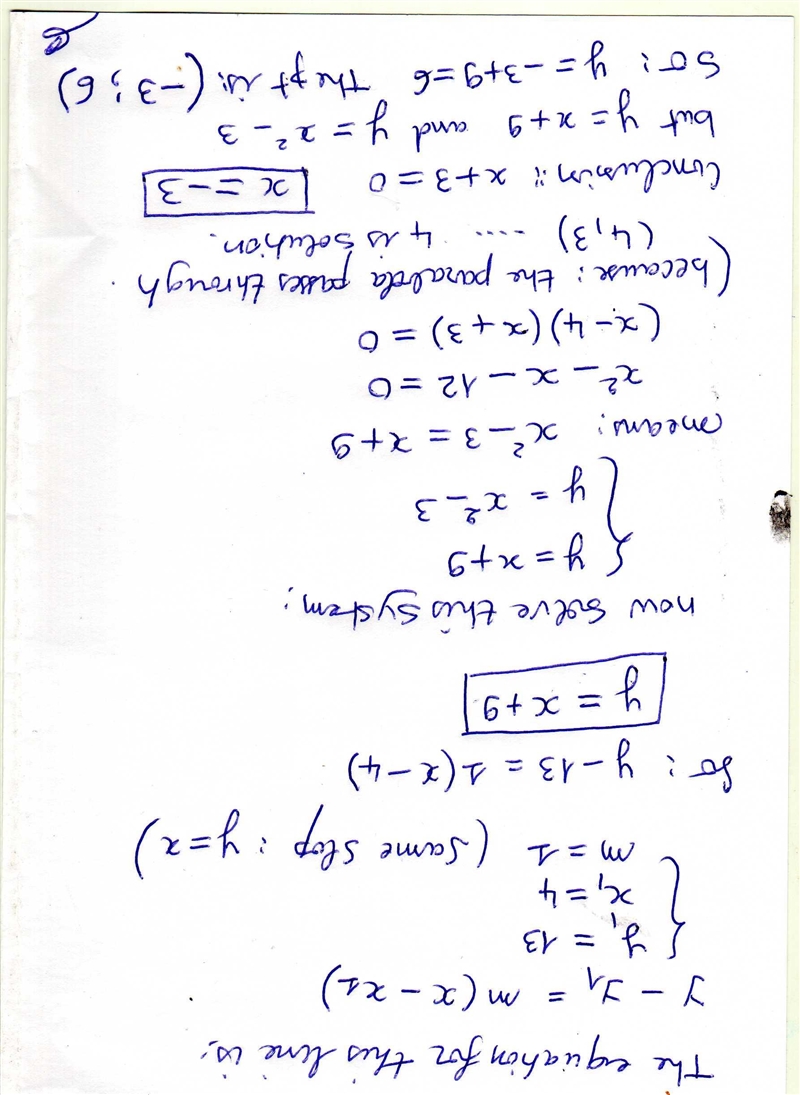 The equation for this line is:
y - y₁ = m(x - x1)
{ y₁ = 13
x₁ = 4
m = 1 (same slop : y = x)
So : y - 13 = 1(x - 4)
y = x + 9
now solve this system:
{ y = x + 9
y = x² - 3
means: x² - 3 = x + 9
x² - x - 12 = 0
(x - 4)(x + 3) = 0
(because : the parabola passes through
(4,3) .... 4 is solution.
Conclusion : x + 3 = 0 x = -3
but y = x + 9 and y = x² - 3
so : y = -3 + 9 = 6 The pt is: (-3 ; 6)